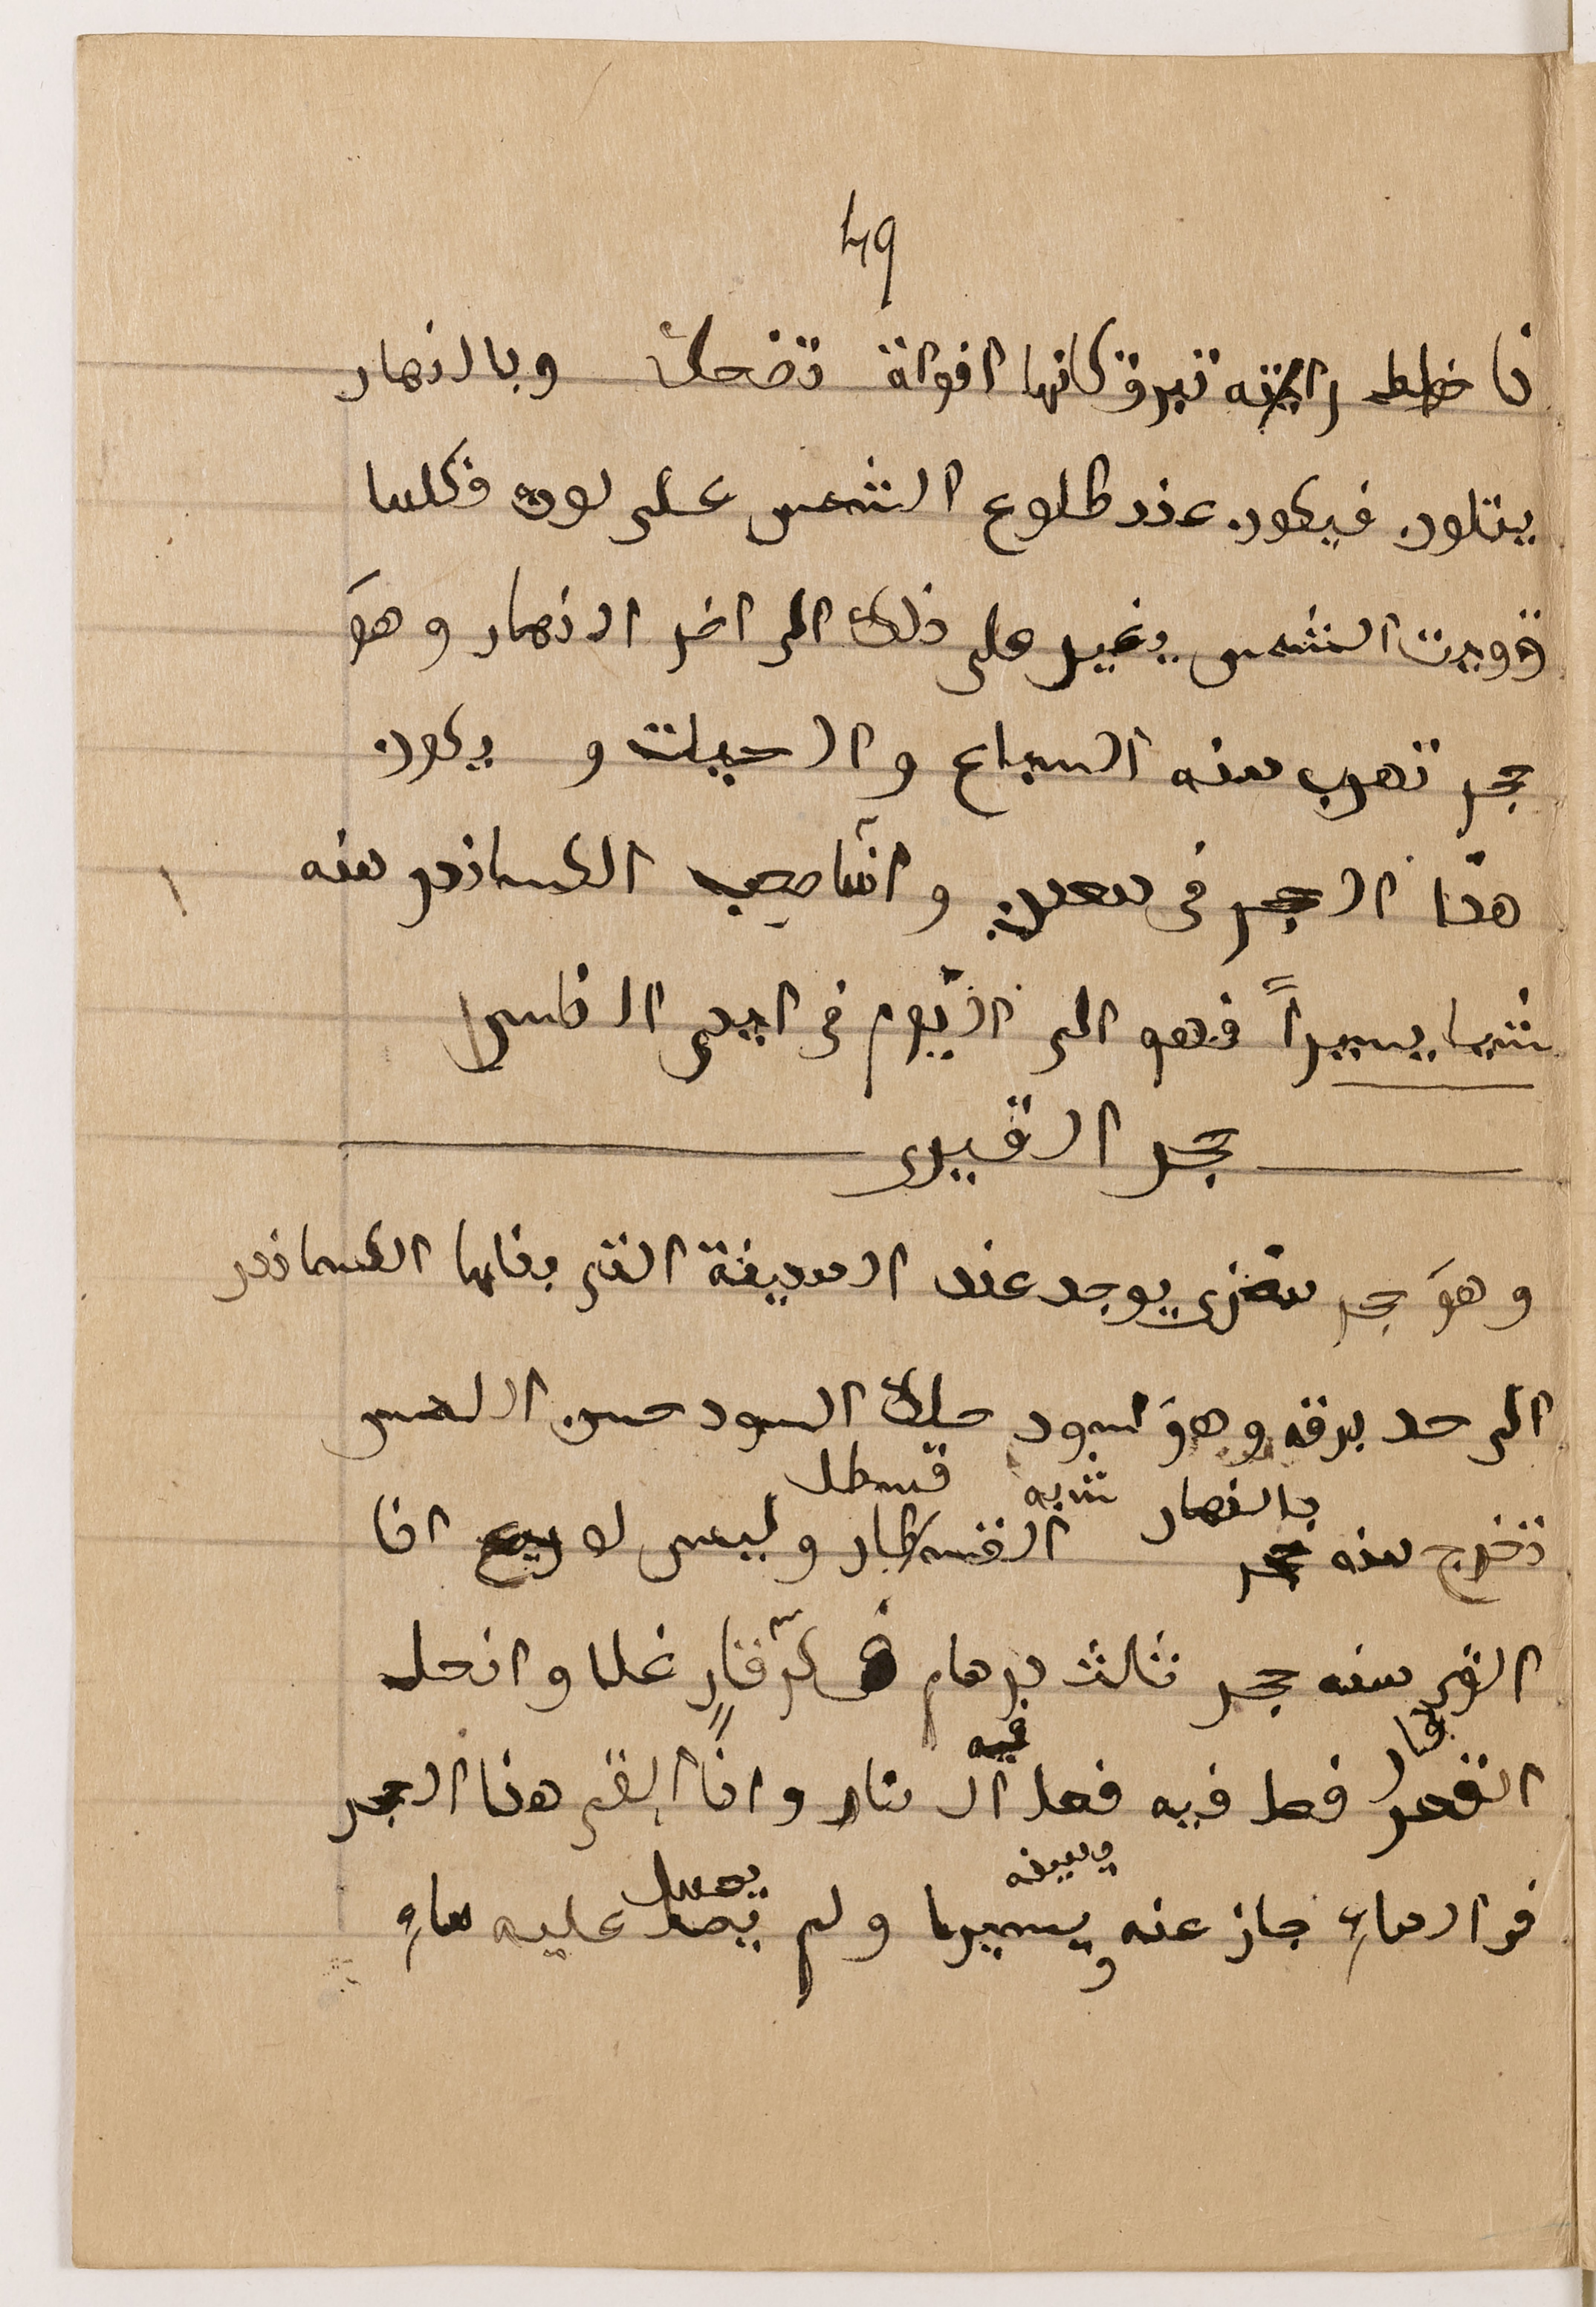 49
فاخطط رايته تبرق كانها افواه تضحك وبالنهار
يتلون فيكون عند طلوع الشمس على لون فكلما
قويت الشمس يغير على ذلك الى اخر النهار وهوَ
حجر تهرب منه السباع والحيات و يكون
هذا الحجر فى معدن وانما صحب الاسكندر منه
شيا يسيراً فهو الى اليوم فى ايدى الناس
حجر القيرى
وهوَ حجر يوجد عند المدينة التى بناها الاسكندر
الى حد برقه وهوَ اسود حلك السود حسن اللمس
بالنهار شبه قسطل
تخرج منه حجر القسطار وليس له ريح اذا
القى منه حجر ثالث درهم فى كر قارٍ غلا وانحل
قار
القعر فعل فيه فعل النار واذا القى هذا الحجر
فيه
ويمينه
فى الماءِ جاز عنه ويسيرا ولم يصل عليه ماءِ